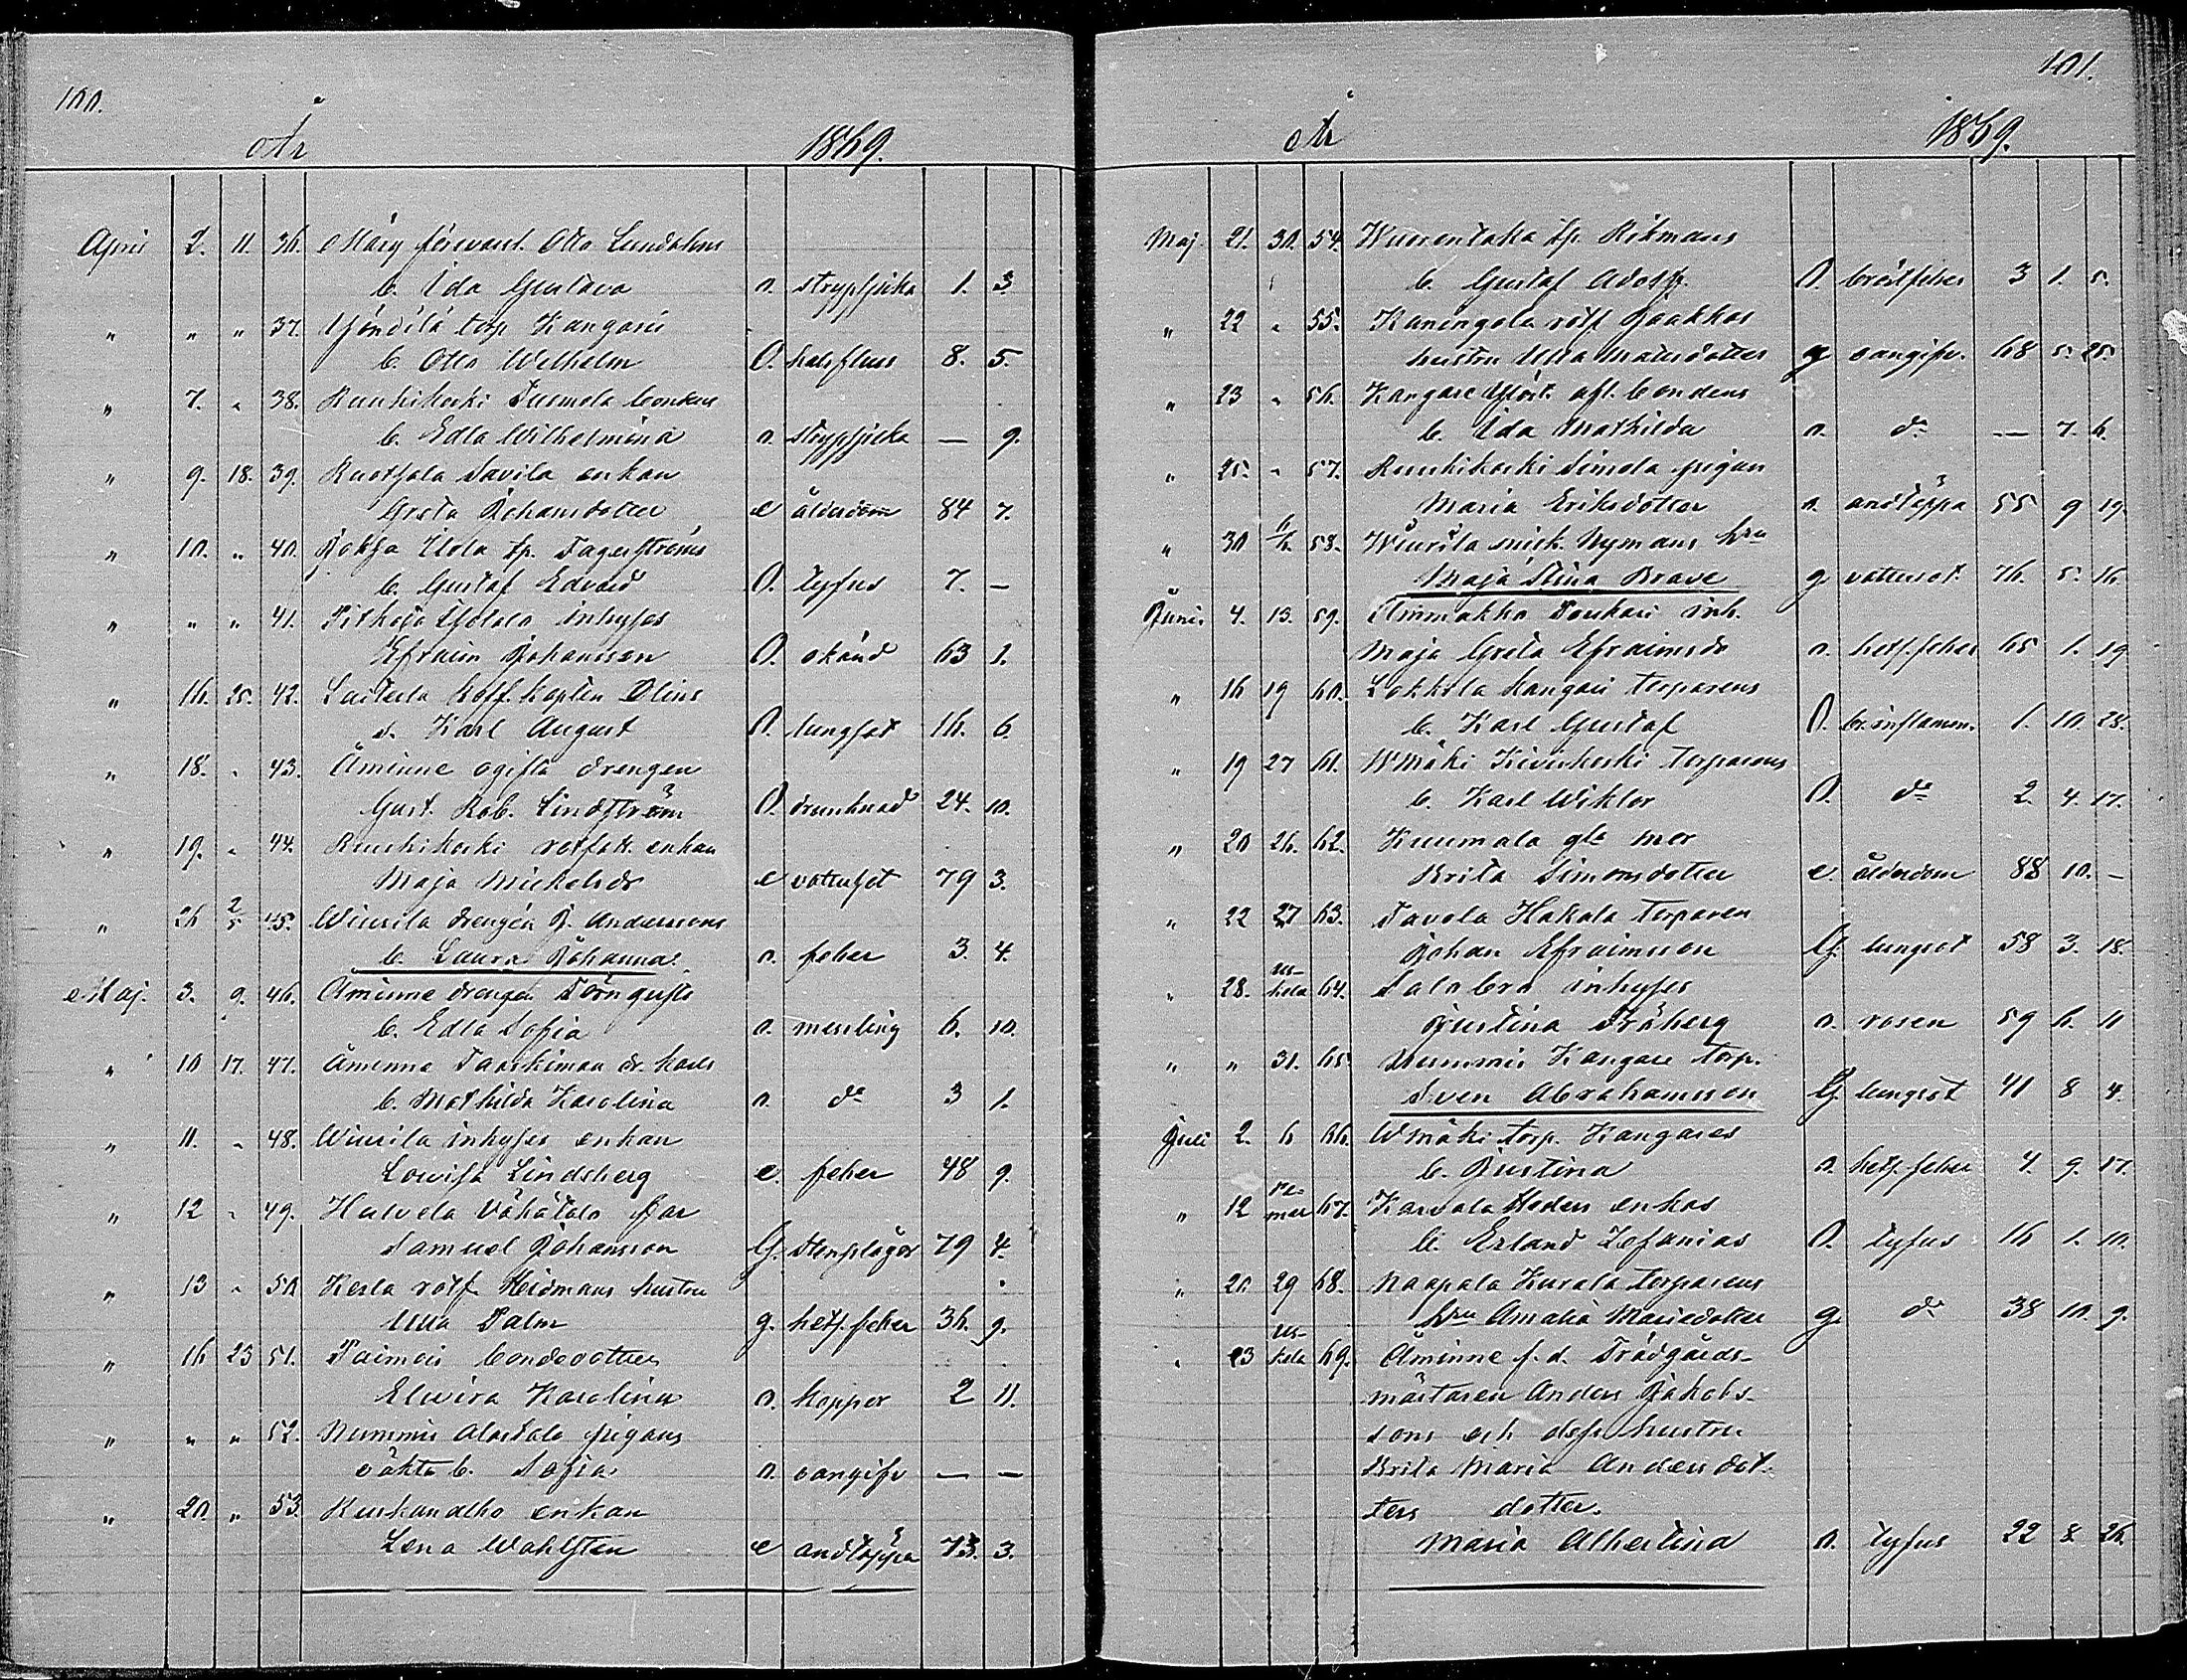 100.
År 1869.
April 2. 11. 36. Märy förevarst. Otto Lundahns
b. Ida Gustava o. strypsjuka 1. 3.
" " " 37. torp Kangari
b. Otto Wilhelm O. halsfluss 8. 5.
" 7. " 38. Ruuhikoski Tuomola bondens
b. Edla Wilhelmina o. strypsjuka — 9.
" 9. 18. 39. Ruotsala Savila enkan
Greta Johansdotter e ålderdom 84 7.
" 10. " 40. Jokfa Uola tp. Fagerströms
b. Gustaf Edvard O. tyfus 7. —
" " " 41. Pitkojo Ylötalo inhyses
Efraim Johansson O. okänd 63 1.
" 16. 25. 42. Laiterla Hoff. kapten Elins
s. Karl August O. lungsot 16. 6.
" 18. " 43. Åminne ogifta drengen
Gust. Rob. Lindström O. drunknad 24. 10.
" 19. " 44. Ruuhikoski rotfatt. enkan
Maja Mickelsdr e vattusot 79 3.
" 26 2/5 45. Wiurila drengen J. Anderssons
b. Laura Johanna. o. feber 3. 4.
Maj. 3. 9. 46. Åminne drengen Törnqvists
b. Edla Sofia o. messling 6. 10.
" 10 17. 47. Åminne Karls
b. Mathilda Karolina o. do 3 1.
" 11. " 48. Wiurila inhyses enkan
Lovisa Lindsberg e. feber 48 9.
" 12 " 49. Hulvela Vähätalo far
Samuel Johansson G. stenplågor 79 4.
" 13 " 50 Kesla rotf. Heidmans hustru
Ulla Palm g. hets. feber 36. 9.
" 16 23 51. Paimois bondedotter
Elvira Karolina o. koppor 2 11.
" " " 52. Nummis Alastalo pigans
oäkta b. Sofia o. oangifv — —
" 20. " 53. enkan
Lena Wahlsten e andtäppa 73. 3.
101.
År 1869.
Maj. 21. 30. 54. Wuorentaka tp. Ritmans
b. Gustaf Adolf. O. bröstfeber 3 1. 5.
" 22 " 55. Kanengola rotf Jaakkos
hustru Ulla Matsdotter g oangifv. 68 5. 25.
" 23 " 56. Kangare afl. bondens
b. Ida Mathilda o. do — 7. 6.
" 25. " 57. Ruuhikoski Simola pigan
Maria Eriksdotter o. andtäppa 55 9 19.
" 30 6/6 58. Wiurila Nymans hru
Maja Stina Brave g vattusot. 76. 5. 16.
Juni. 4. 13. 59. Ammakka Toukari inh.
Maja Greta Efraimsdr o. hets. feber 65 1. 19
" 16 19 60. Lokkila Kangari torparens
b. Karl Gustaf O. br. inflamm. 1. 10. 28.
" 19 27 61. Wmäki Kivikoski torparens
b. Karl Wiktor O. do 2. 4. 17.
" 20 26. 62. Kuumola gla mor
Brita Simonsdotter e. ålderdom 88 10. —
" 22 27 63. Tavola Hakala torparen
Johan Efraimsson G. lungsot 58 3. 18.
" 28. Uskela 64. Salabro inhyses
Justina Fröberg o. rosen 59 6. 11
" " 31. 65. Nummis Kangare torp.
Sven Abrahamsson G. lungsot 41 8 4.
Juli 2. 6 66. Wmäki torp. Kangares
b. Justina o. hets. feber 4. 9. 17.
" 12 Pemar 67. Karvala Heden enkas
b. Erland Zefanias O. tyfus 16 1. 10.
" 20 29 68. Naapala Kurala torparens
hru Amalia Mariadotter g. do 38 10. 9.
" 23 Uskela 69. Åminne f. d. Trädgårds-
mästaren Anders Jakobs-
sons och dess hustru
Brita Maria Andersdot-
ters dotter.
Maria Albertina o. tyfus 22 8 26.